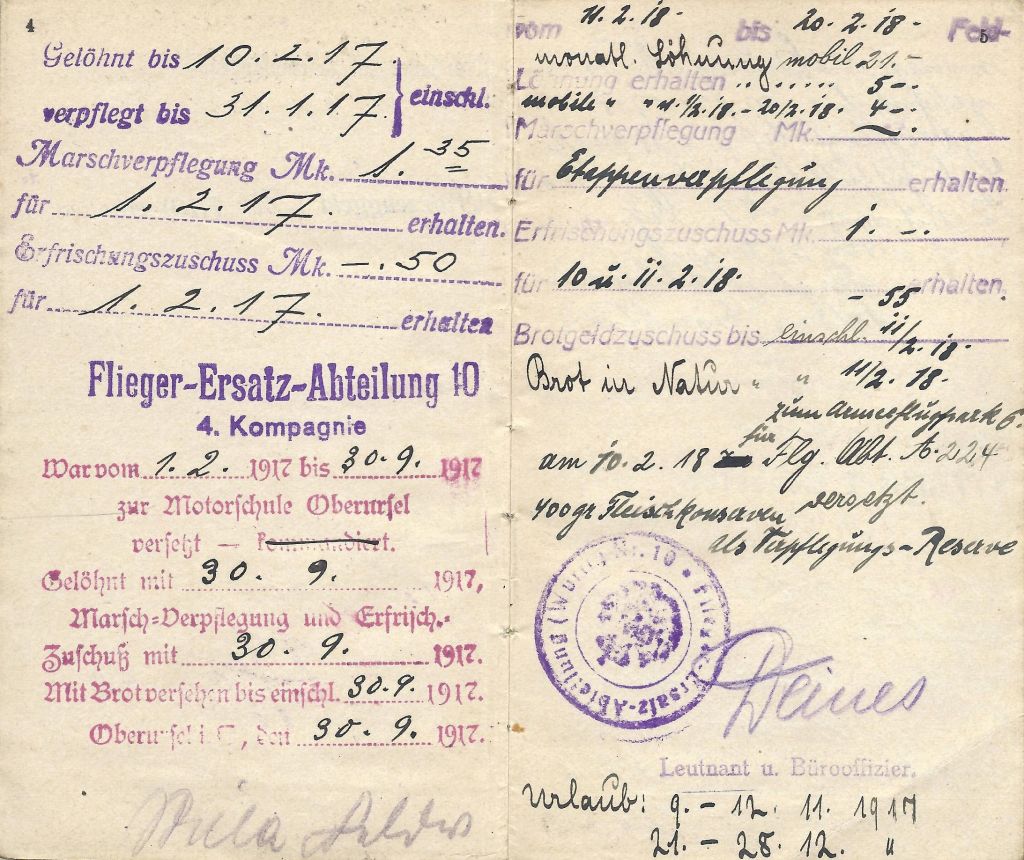 4
Gelöhnt bis 10.2.17.
verpflegt bis 31.1.17. } einschl.
Marschverpflegung Mk. 1.35
für 1.2.17. erhalten.
Erfrischungszuschuss Mk. —.50
für 1.2.17 erhalten
Flieger-Ersatz-Abteilung 10
4. Kompagnie
War vom 1.2. 1917 bis 30.9. 1917
zur Motorschule Oberursel
versetzt — kommandiert.
Gelöhnt mit 30. 9. 1917,
Marsch-Verpflegung und Erfrisch.-
Zuschuß mit 30. 9. 1917.
Mit Brot versehen bis einschl. 30.9. 1917.
Oberursel i. T., den 30. 9. 1917.
5
vom 11.2.18. bis 20.2.18. Feld-
monatl. Löhnung mobil 21.-
Löhnung erhalten 5-.
mobile " " 11./2.18. - 20/2.18. 4-.
Marschverpflegung Mk. —.
für Etappenverpflegung erhalten
Erfrischungszuschuss Mk. 1. -.
für 10 u. 11.2.18. erhalten.
- 55
Brotgeldzuschuss bis einschl. 11/2.18.
Brot in Natur " " 11/2.18.
zum Armeeflugpark 6.
am 10.2.18 für Flg. Abt. A. 224
versetzt.
400 gr Fleischkonserven
als Verpflegungs-Reserve
Flieger-Ersatz-Abteilung (Württg) Nr. 10
Deines
Leutnant u. Bürooffizier.
Urlaub: 9. - 12. 11. 1917
21. - 28. 12. "